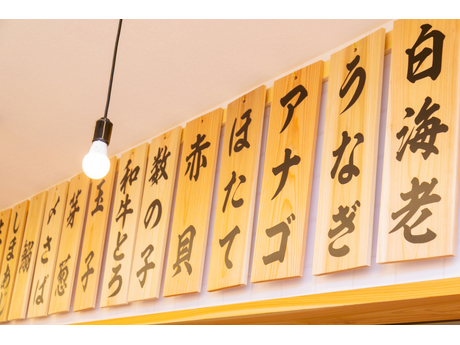 白海老
うなぎ
アナゴ
ほたて
赤貝
数の子
和牛とろ
玉子
芽葱
〆さば
しまあじ